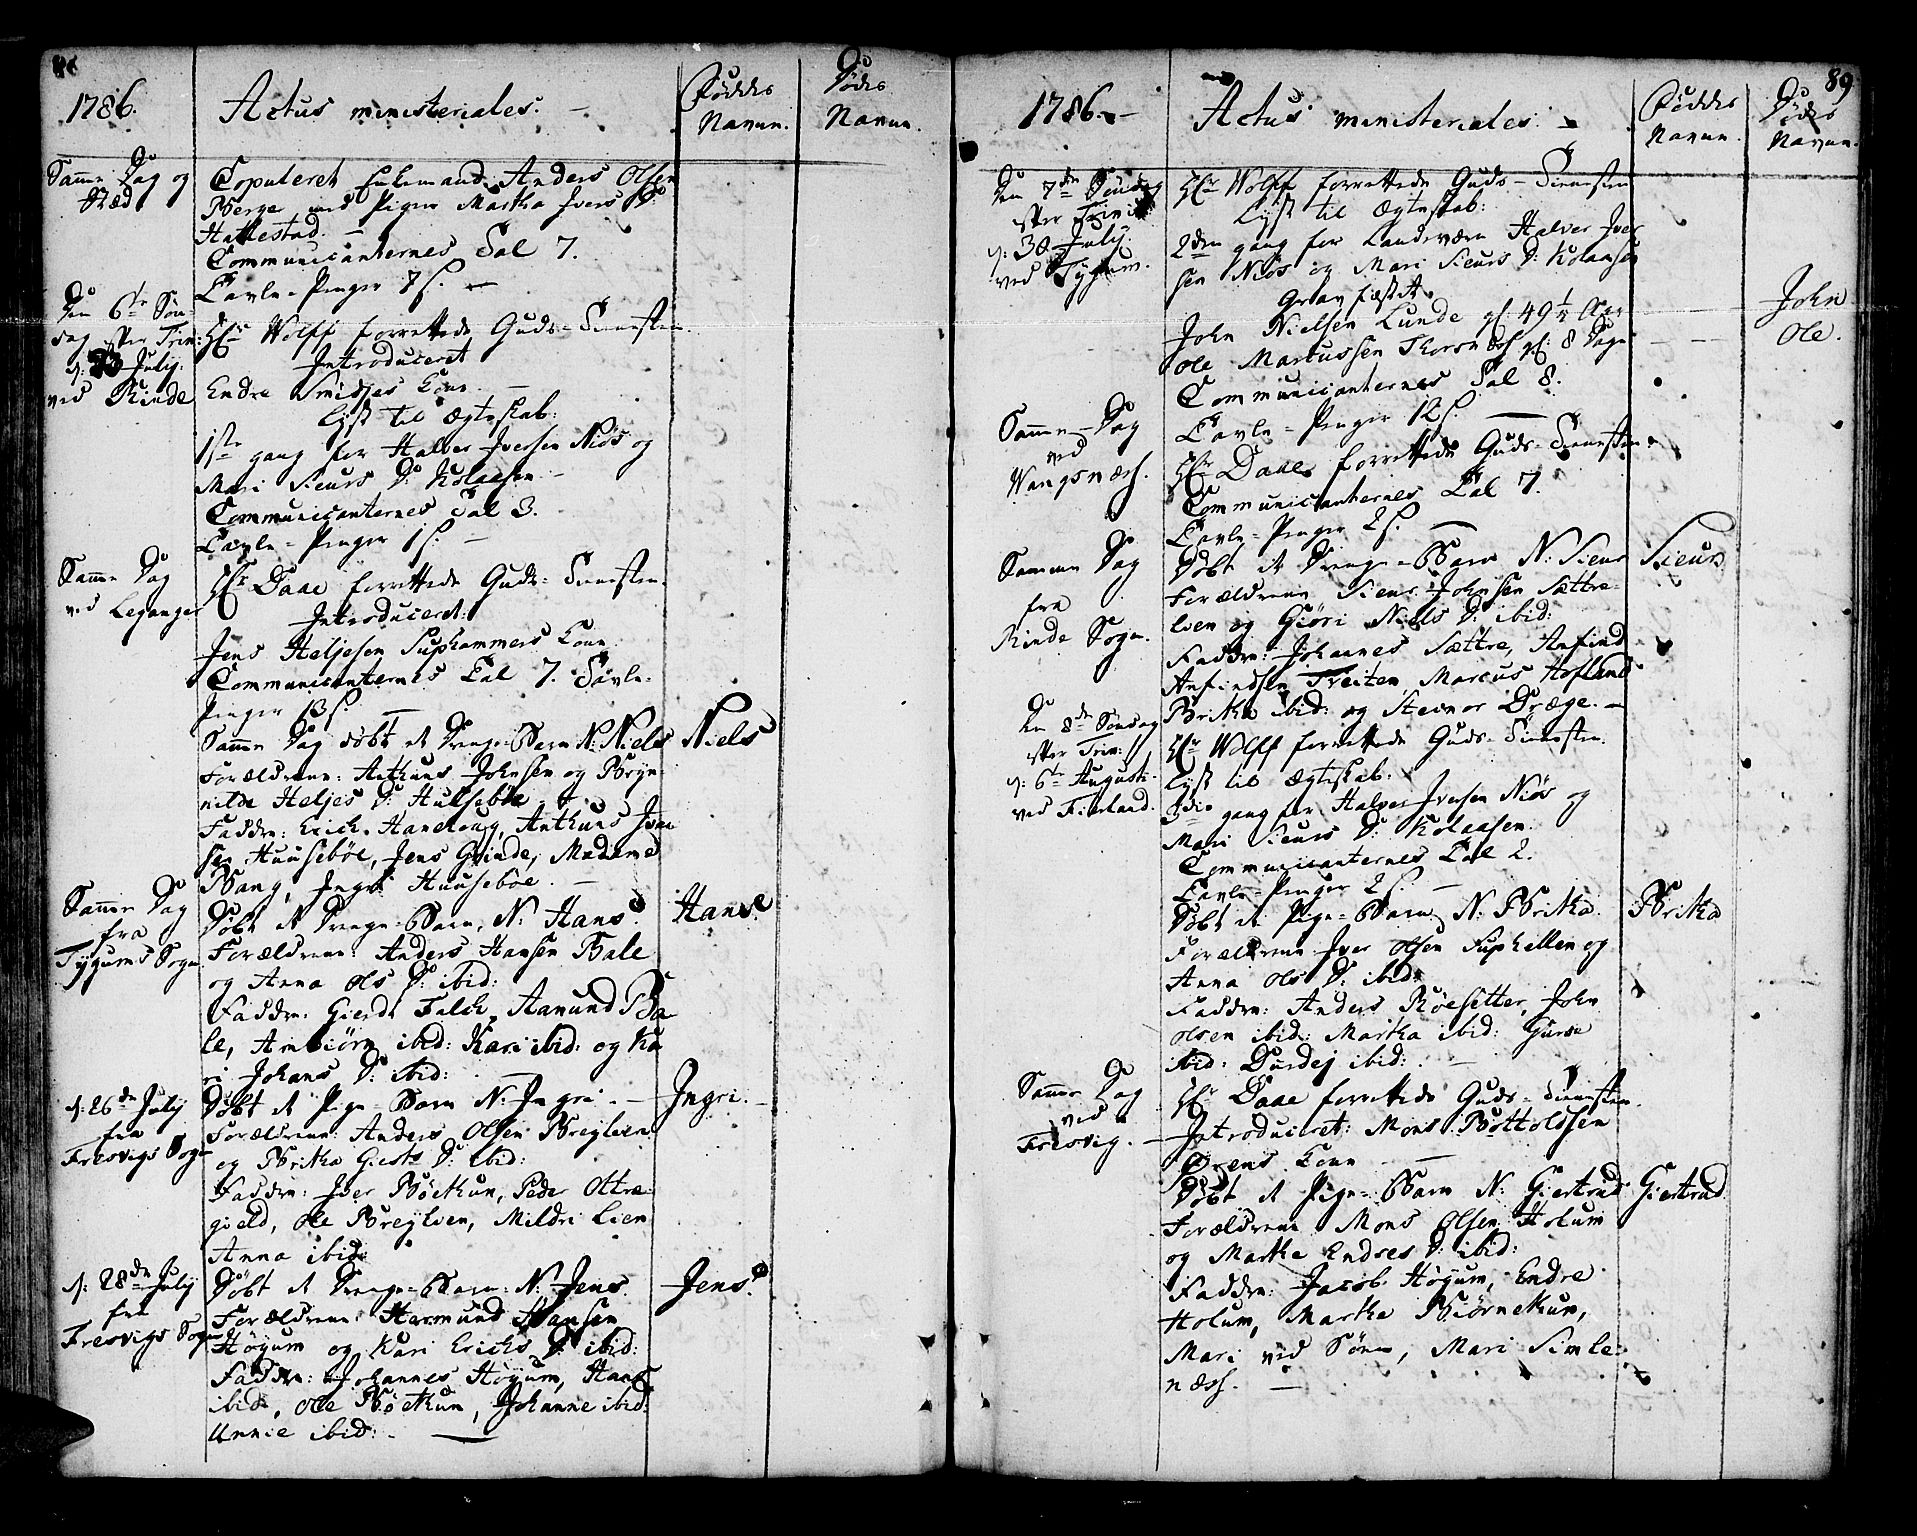 1786.
Actus ministeriales. —
Føddes
Navne.
Dødes
Navne.
Samme Dag og
Stæd
Copuleret Enkemand Anders Olsen
Berge med Pigen Martha Ivers D:
Hallestad. —
Communicanternes Tal 7.
Tavle-Penger 7 s. —
Den 6te Søn-
dag efter Trin:
d: 23 Julij.
ved Rinde
Hr Wolff forrettede Guds-Tienesten.
Introduceret
Endre Smidjes Kone. —
Lyst til Ægteskab:
1ste gang for Halver Iversen Niøs og
Mari Sieurs D: Kolaasen —
Communicanternes Tal 3.
Tavle-Penger 1 s. —
Samme Dag
ved Leganger
Hr Daae forrettede Guds-Tienesten.
Introduceret:
Jens Heljesen Suphammers Kone
Communicanternes Tal 7. Tavle-
Penger 13 s. —
Samme Dag døbt et Drenge-Barn N: Niels
Niels
Forældrene: Anthuns Johnsen og Bryn-
nilde Heljes D: Huusebøe
Faddre: Erich Hanehoug, Anthuns Iver
sen Huusebøe, Jens Grinde, Madame
Bang, Ingri Huusebøe. —
Samme Dag
fra
Tygums Sogn
Døbt et Drenge-Barn, N: Hans
Hans
Forældrene: Anders Hansen Bale
og Anna Ols D: ibid:
Faddre: Gierdt Falch, Aamund Ba
le, Ambiørn ibid: Kari ibid: og Ka
ri Johans D: ibid:
d: 26de Julij
fra
Fresvigs Sogn
Døbt et Pige-Barn N: Ingri. —
Ingri. —
Forældrene: Anders Olsen Breylien
og Britha Giests D: ibid:
Faddre: Iver Bøetun, Peder Ottre-
gield, Ole Breylien, Mildri Lien
Anna ibid:
d: 28de Julij
fra
Fresvigs Sogn
Døbt et Drenge-Barn N: Jens
Jens
Forældrene: Harmund Hansen
Høyum og Kari Erichs D: ibid:
Faddre: Johannes Høyum, Hans
ibid:, Ole Bøethun, Johanne ibid:
Unnie ibid: —
89
1786. —
Actus ministeriales. —
Føddes
Navne.
Dødes
Navne.
Den 7de Søndag
efter Trinit
d: 30 Julij.
ved Tygum.
Hr Wolff forrettede Guds-Tienesten
Lyst til Ægteskab:
2den gang for Landeværn Halver Iver
sen Niøs og Mari Sieurs D: Kolaasen
Gravfæstet
John Nielsen Lunde gl. 49 1/4 Aar
John
Ole Martussen Thorsnæss gl: 8 Dage
Ole.
Communicanternes Tal 8.
Tavle-Penger 12 s. —
Samme-Dag
ved
Wangsnæss.
Hr Daae forrettede Guds-Tienesten.
Communicanternes Tal 7.
Tavle-Penger 2 s. —
Samme Dag
fra
Rinde Sogn.
Døbt et Drenge-Barn N: Sieur
Sieur
Forældrene Sieur Johnsen Sættre-
lien og Giøri Niels D: ibid:
Faddre: Johannes Sættre, Anfind
Anfindsen Treiten Marcus Hofland
Britha ibid: og Steinor Dræge. —
Den 8de Søndag
efter Trin:
d: 6te Augusti.
ved Fierland.
Hr Wolff forrettede Guds-Tienesten.
Lyst til Ægteskab:
3die gang for Halver Iversen Niøs og
Mari Sieurs D: Kolaasen.
Communicanternes Tal 2.
Tavle-Penger 2 s. —
Døbt et Pige-Barn N: Britha.
Britha
Forældrene Iver Olsen Suphellen og
Anna Ols D: ibid:
Faddre: Anders Bøesetter, John
Olsen ibid: Martha ibid: Guroe
ibid: Durdej ibid: —
Samme Dag
ved
Fresvig. —
Hr Daae forrettede Guds-Tienesten.
Introduceret: Mons Bottolfsen
Ørens Kone —
Døbt et Pige-Barn N: Giertrud
Giertrud
Forældrene Mons Olsen Holum
og Marthe Endres D: ibid:
Faddre: Jacob Høyum, Endre
Holum, Marthe Biørnethun,
Mari ved Søen, Mari Simle-
næss. —